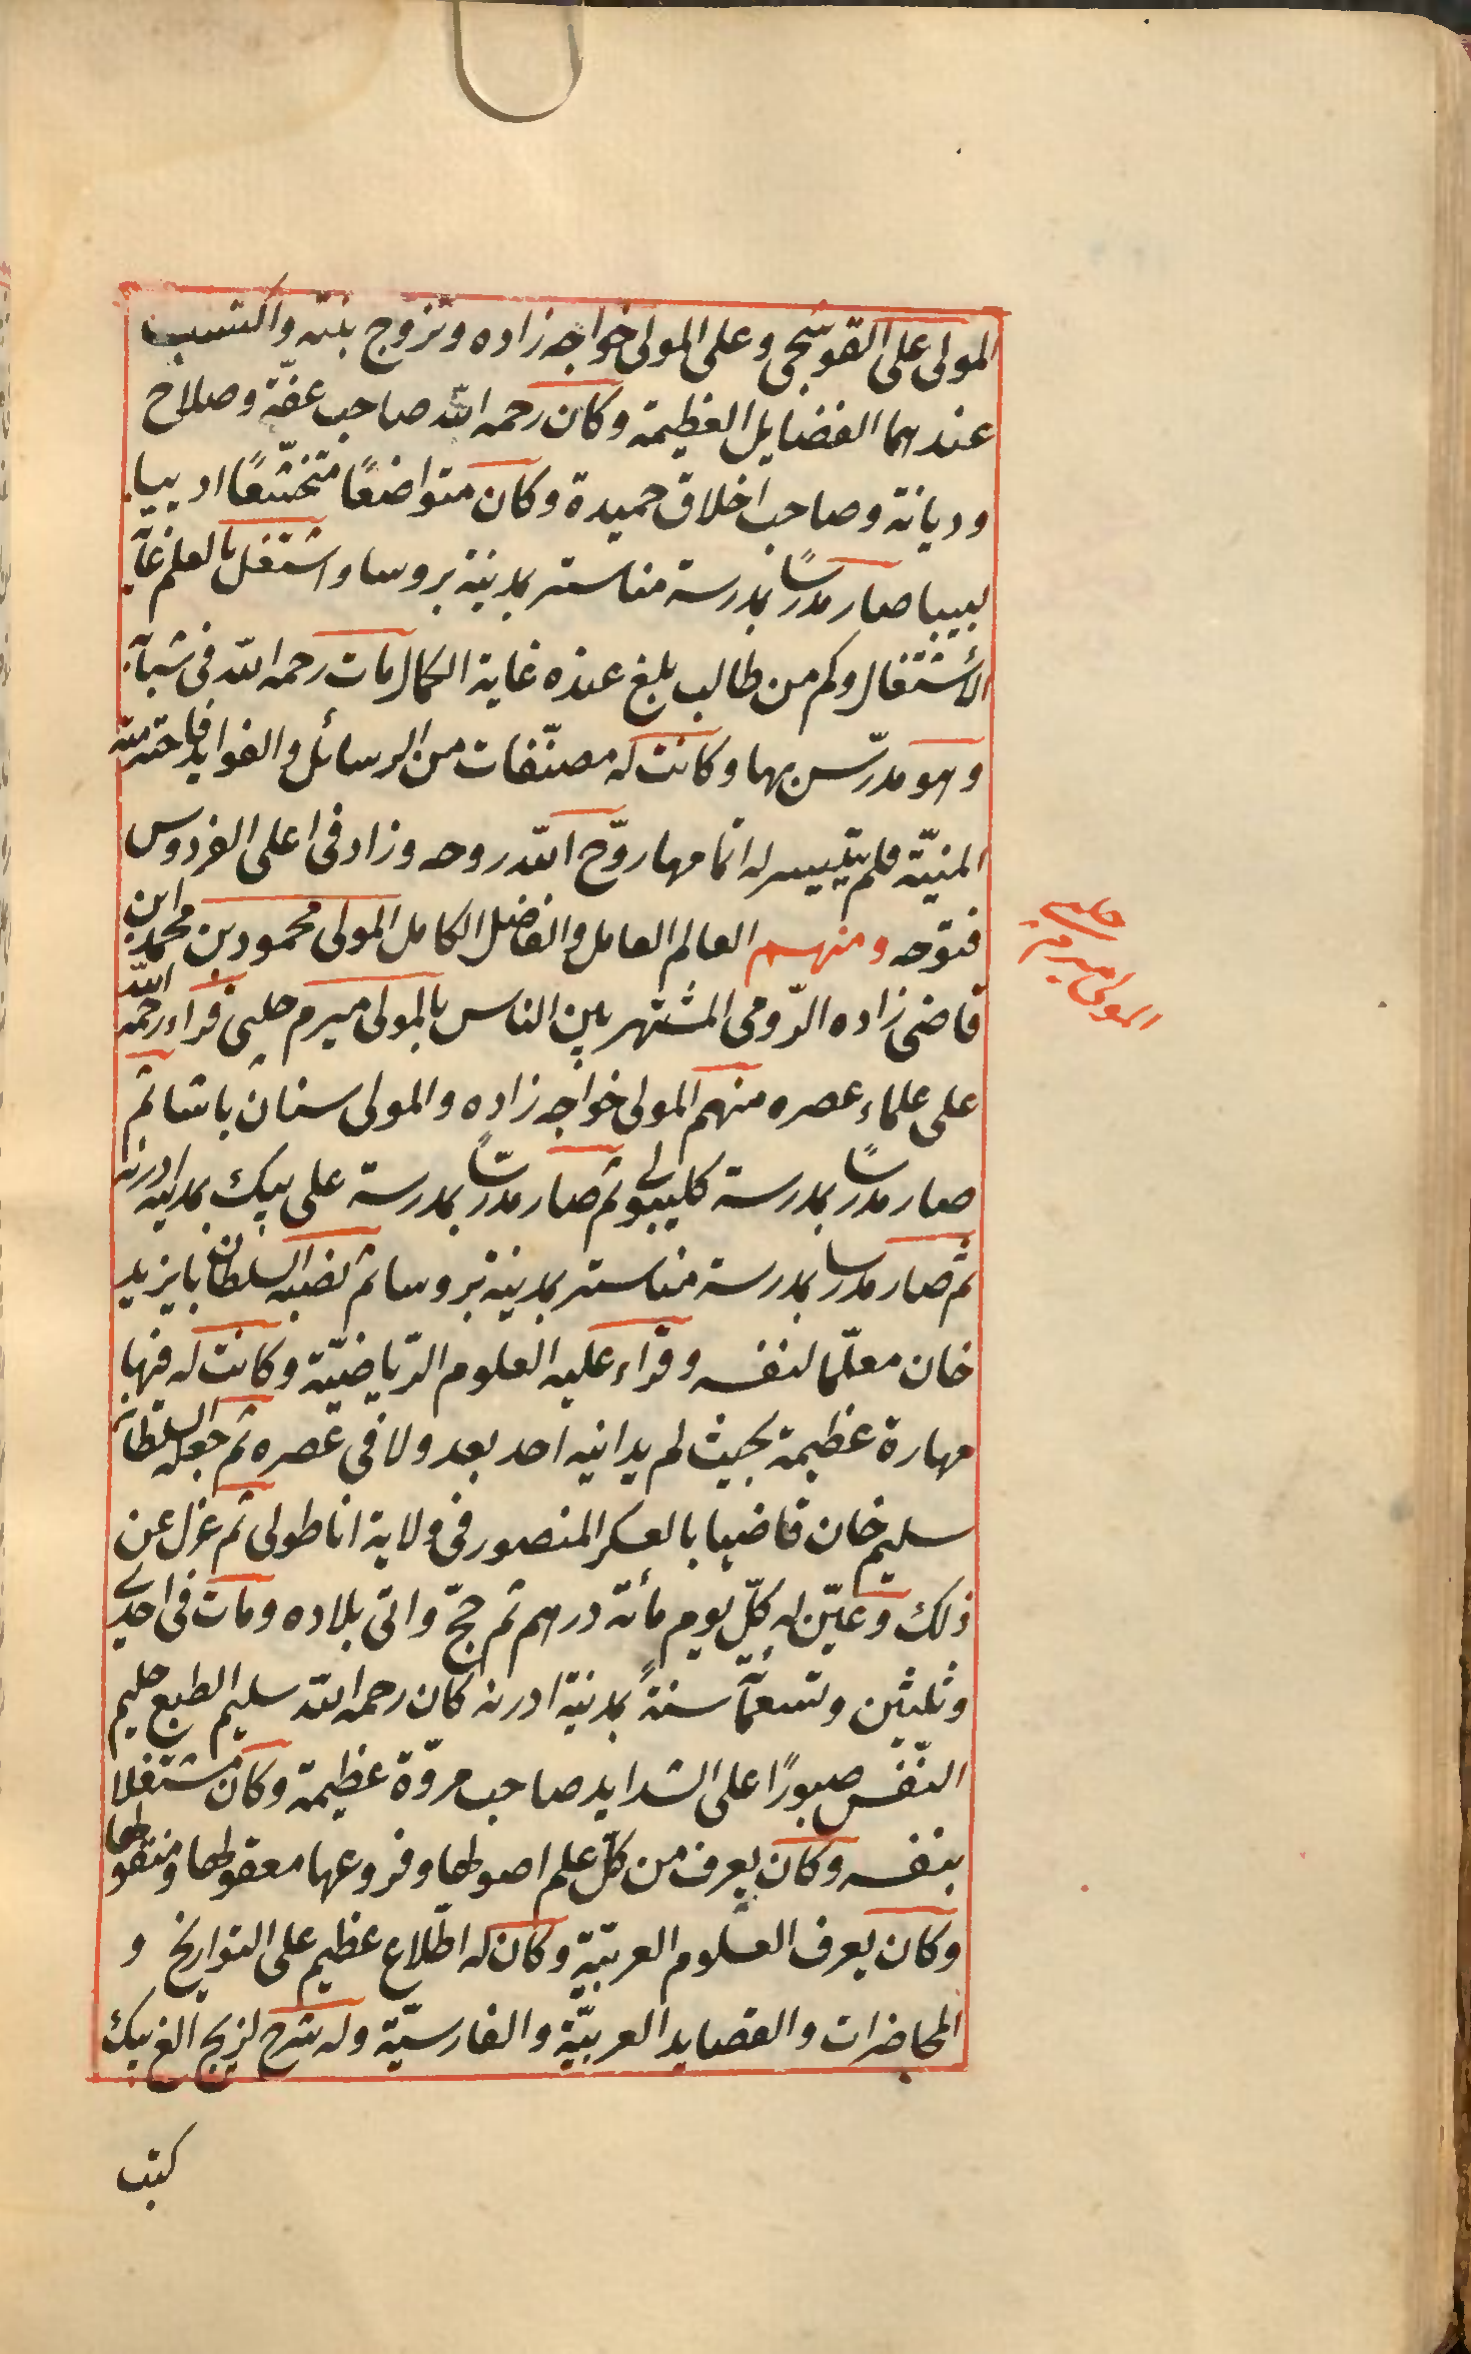 المولى على القوشجى وعلى المولى خواجه زاده وتزوج بنته واكتسب
عندهما الفضايل العظيمة وكان رحمه الله صاحب عفّة وصلاح
وديانة وصاحب اخلاق حميدة وكان متواضعًا متخشّعًا اديبا
لبيبا صار مدرسًا بمدرسة مناستر بمدينة بروسا واشتغل بالعلم غاية
الأشتغال وكم من طالب بلغ عنده غاية الكمال مات رحمه الله فى شبابه
وهو مدرّس بها وكانت له مصنّفات من الرسائل والفوايد فاخترمته
المنيّة فلم يتيسر له اتمامها روّح الله روحه وزاد فى اعلى الفردوس
فتوحه ومنهم العالم العامل والفاضل الكامل المولى محمود بن محمد ابن
قاضى زاده الرّومى المشتهر بين الناس بالمولى ميرم چلبى قراء رحمه الله
على علماء عصره منهم المولى خواجه زاده والمولى سنان باشا ثم
صار مدرسًا بمدرسة كليبولى ثم صار مدرسًا بمدرسة على بيك بمدينة ادرنه
ثم صار مدرسا بمدرسة مناستر بمدينة بروسا ثم نصبه السلطان بايزيد
خان معلّما لنفسه وقراء عليه العلوم الرّياضيّة وكانت له فيها
مهارة عظيمة بحيث لم يدانيه احد بعد ولا فى عصره ثم جعله السلطان
سليم خان قاضيا بالعسكر المنصور فى ولاية اناطولى ثم عزل عن
ذلك وعيّن له كلّ يوم مأئة درهم ثم حجّ واتى بلاده ومات فى احدى
وثلثين وتسعمائة سنةً بمدينة ادرنه كان رحمه الله سليم الطبع حليم
النّفس صبورًا على الشدايد صاحب مروّة عظيمة وكان مشتغلا
بنفسه وكان يعرف من كلّ علم اصولها وفروعها معقولها ومنقولها
وكان يعرف العلوم العربيّة وكان له اطّلاع عظيم على التواريخ و
المحاضرات والقصايد العربيّة والفارسيّة وله شرح لزيج الغ بيك
كتب
المولى ميرم
چلبى